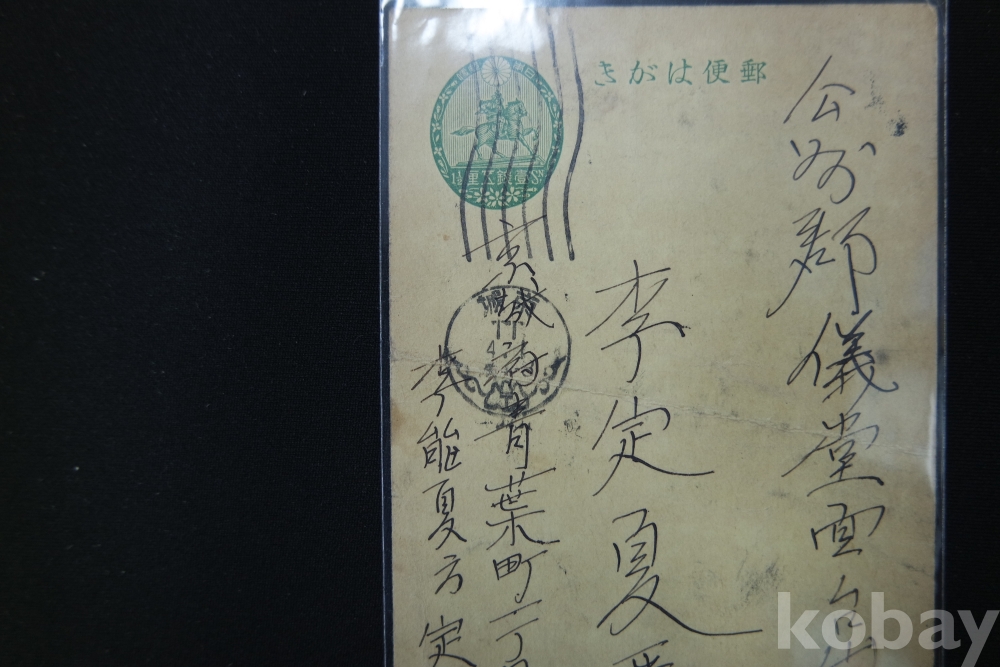 きがは便郵
公州郡儀堂面
李定夏
京城府青葉町二丁目
李能夏方
定
kobay